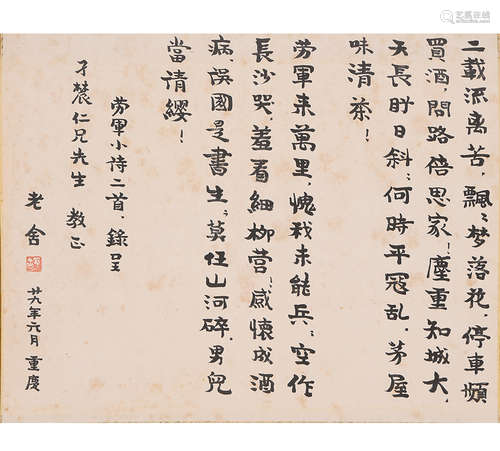 二載流離苦,飄〻夢落花,停車頻
買酒,問路倍思家!塵重知城大,
天長盼日斜;何時平寇亂,茅屋
味清茶!
勞軍來萬里,愧我未能兵;空作
長沙哭,羞看細柳營!感懷成酒
病,誤國是書生;莫任山河碎,男兒
當請纓!
勞軍小詩二首,錄呈
仁兄先生 教正
老舍
廿九年六月 重慶
艺狐在线